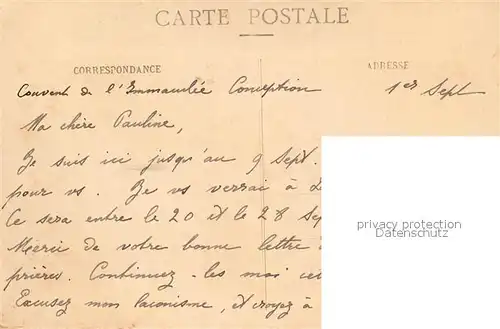 CARTE POSTALE
CORRESPONDANCE
ADRESSE
Couvent de l'Immaculée Conception
1er Sept
Ma chère Pauline,
Je suis ici jusqu'au 9 Sept.
pour vs. Je vs verrai à
Ce sera entre le 20 et le 28 Sep
Merci de votre bonne lettre
prières. Continuez-les moi
Excusez mon laconisme, et croyez à
privacy protection
Datenschutz